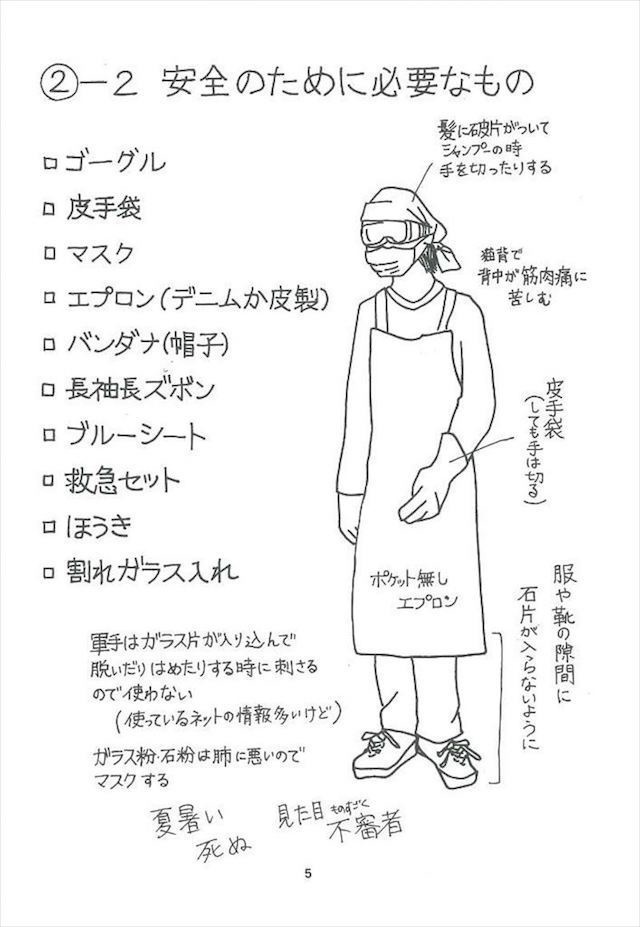 ②-2 安全のために必要なもの
髪に破片がついて
シャンプーの時
手を切ったりする
□ ゴーグル
□ 皮手袋
□ マスク
□ エプロン(デニムか皮製)
□ バンダナ(帽子)
□ 長袖長ズボン
□ ブルーシート
□ 救急セット
□ ほうき
□ 割れガラス入れ
猫背で
背中が筋肉痛に
苦しむ
皮手袋
(しても手は切る)
ポケット無し
エプロン
服や靴の隙間に
石片が入らないように
軍手はガラス片が入り込んで
脱いだりはめたりする時に刺さる
ので使わない
(使っているネットの情報多いけど)
ガラス粉・石粉は肺に悪いので
マスクする
夏暑い
死ぬ
見た目ものすごく
不審者
5